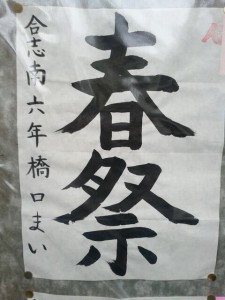 春祭
合志南六年橋口まい